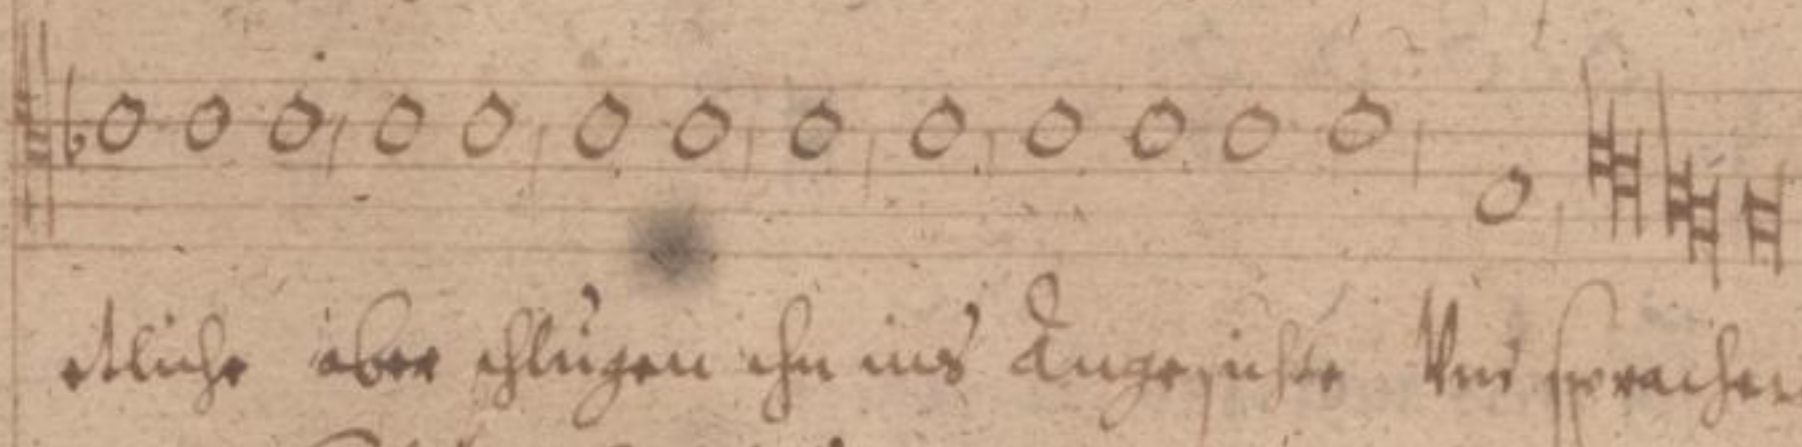 etliche aber schlugen ihn ins Angesichte Vnd sprachen